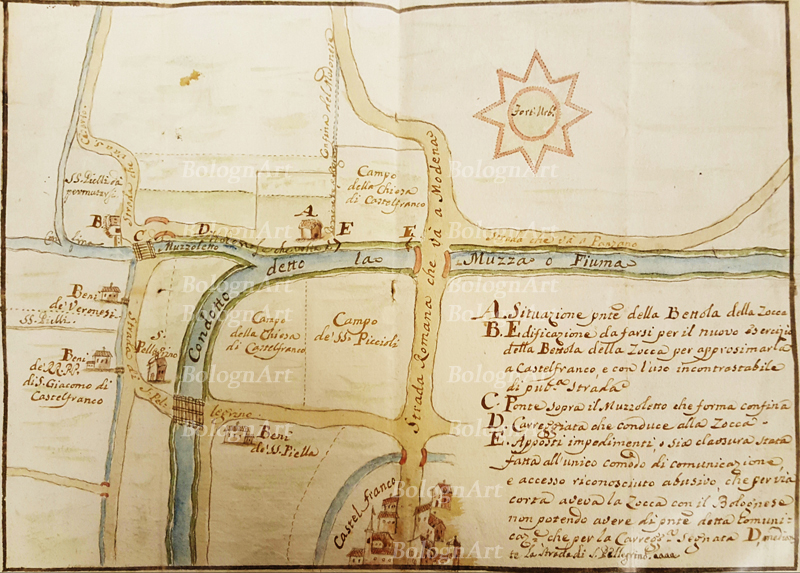 BolognArt
Fort. Urb.
SS. Piella da
permutarsi
B
C
D
A
E
E
Campo
della Chiesa
di Castelfranco
Strada che và a Panzano
Muzzoletto
detto la Muzza o Fiuma
Condotto
Strada Romana che và a Modena
Beni
de' Veronesi
SS. Pielli
S.
Pellegrino
Beni
de' RR. PP.
di S. Giacomo di
Castelfranco
Campo
della Chiesa
di Castelfranco
Campo
de' SS. Piccioli
Beni
de' SS. Piella
Castel Franco
A. Situazione pnte della Bettola della Zocca
B. Edificazione da farsi per il nuovo Esercizio
della Bettola della Zocca per approsimarla
a Castelfranco, e con l'uso incontrastabile
di pub.ca Strada
C. Ponte sopra il Muzzoletto che forma confina
D. Carreggiata che conduce alla Zocca
E. Apposti impedimenti, ò sia clausura stata
fatta all'unico comodo di comunicazione,
e accesso riconosciuto abusivo, che per via
corta aveva la Zocca con il Bolognese
non potendo avere di pnte detta Comuni-
caz.ne che per la Carregg.ta segnata D, median-
te la Strada di S. Pellegrino